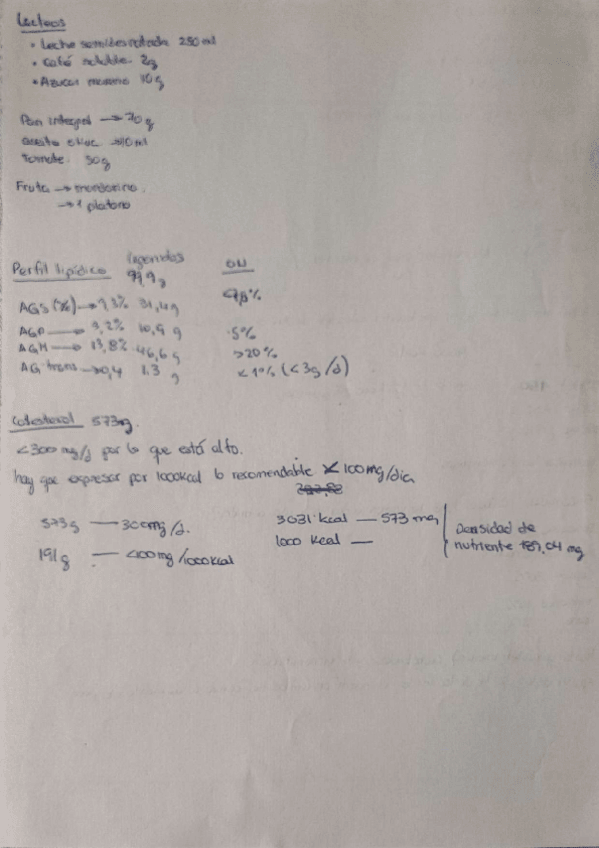 Lacteos
• Leche semidesnatada 250 ml
• Café soluble 2g
• Azucar moreno 10g
Pan integral → 70g
aceite oliva → 10 ml
Tomate 50g
Fruta → mandarina.
→ 1 platano
Perfil lipídico ingeridos 99,9g ON
AGS (%) → 9,3% 31,4g <7,8%
AGP → 3,2% 10,9 g 5%
AGM → 13,8% 46,6g >20%
AG trans → 0,4 1.3 g <1% (<3g/d)
Colesterol 573g.
<300 mg/d por lo que está alto.
hay que expresar por 1000kcal lo recomendable <100mg/día
573g — 300mg/d. 3031 kcal — 573 mg
191g — <100mg/1000kcal 1000 kcal —
Densidad de
nutriente 189,04 mg